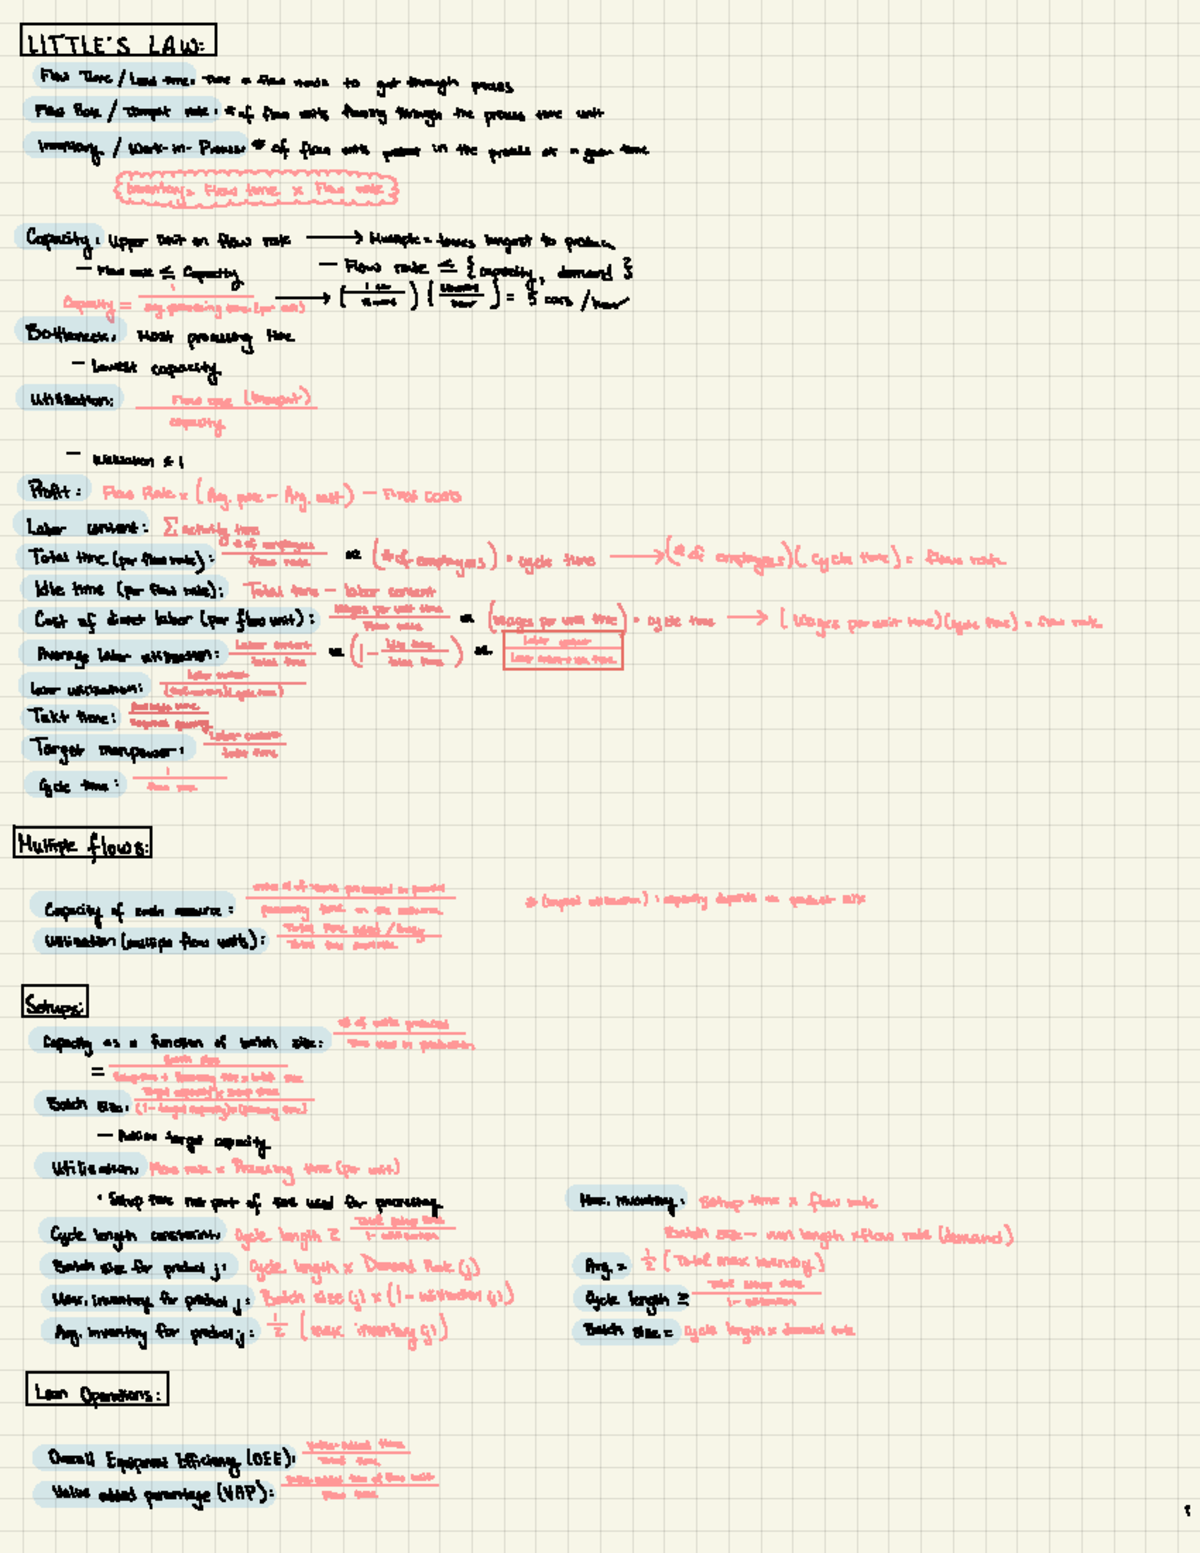 LITTLE'S LAW:
Flow Time / Lead time: time a flow needs to get through process
Flow Rate / : # of flow units flowing through the process time unit
Inventory / Work-in-Process # of flow units present in the process at a given time
Inventory = Flow time × Flow rate
Capacity: Upper limit on flow rate → Multiple = takes longest to produce
— Flow rate ≤ Capacity — Flow rate ≤ { capacity, demand }
Capacity = 1 / avg. processing time (per unit) → ( 1 car / ) ( / hour ) = cars / hour
Bottleneck: Most processing time
— lowest capacity
Utilization: Flow rate / capacity
— Utilization ≤ 1
Profit: Flow Rate × (Avg. price — Avg. cost) — Fixed costs
Labor content: Σ activity time
Total time (per flow rate): # of employees / flow rate or (# of employees) • cycle time → (# of employees)(cycle time) = flow rate
Idle time (per flow rate): Total time — labor content
Cost of direct labor (per flow unit): Wages per unit time / Flow rate or (Wages per unit time) • cycle time → (Wages per unit time)(cycle time) = flow rate
Average labor utilization: Labor content / total time or (1 - Idle time / total time) or Labor content / Labor content + idle time
Labor utilization: Labor content /
Takt time: Available time / Required quantity
Target manpower: Labor content / takt time
Cycle time: 1 / flow rate
Multiple flows:
Capacity of each resource: processed in parallel / processing time on the resource capacity depends on product mix
Utilization (multiple flow units): Total time used / busy / Total time available
Setups:
Capacity as a function of batch size: # of units produced / Time used in production
= Batch size / Setup time + Processing time × batch size
Batch size: Target capacity × setup time / (1 - target capacity) × (processing time)
— Achieve target capacity
Utilization: Flow rate × Processing time (per unit)
• Setup time not part of time used for processing
Max. inventory: Setup time × flow rate
Cycle length constraint: Cycle length ≥ Total setup time / 1 - utilization
Batch size — run length × flow rate (demand)
Batch size for product j: Cycle length × Demand Rate (j)
Avg. = 1/2 (Total max inventory)
Max. inventory for product j: Batch size (j) × (1 - utilization (j))
Cycle length ≥ Total setup time / 1 - utilization
Avg. inventory for product j: 1/2 (max inventory (j))
Batch size = Cycle length × demand rate
Lean Operations:
Overall Equipment Efficiency (OEE): Value-added time / Total time
Value added percentage (VAP): Value-added time of flow unit / Flow time